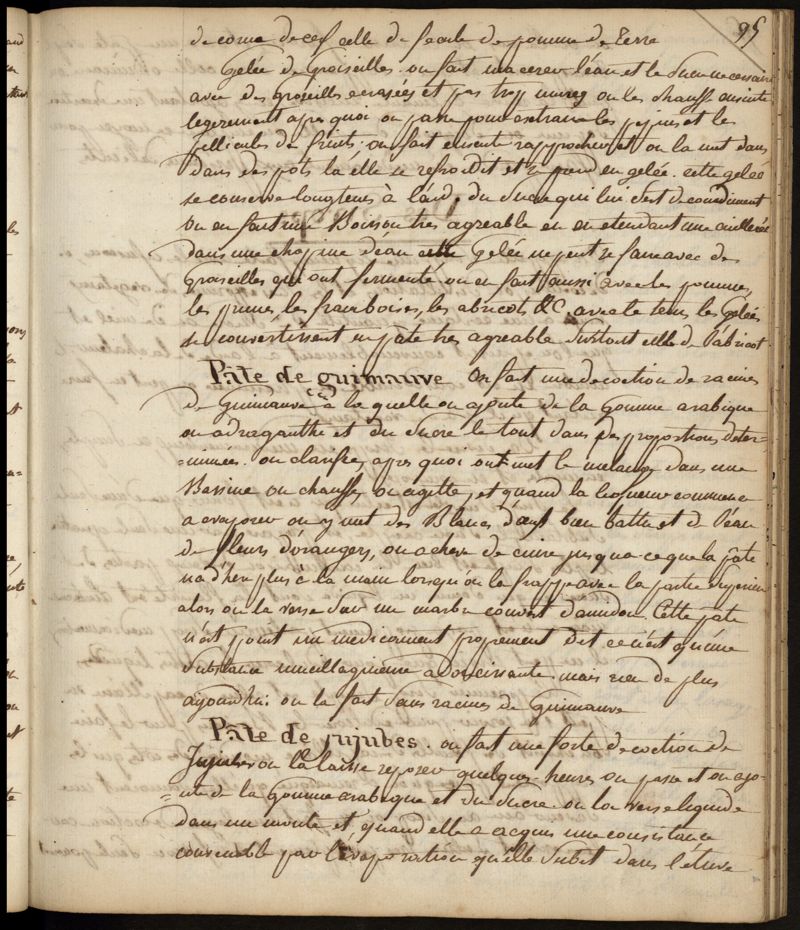 95
de corne de cerf celle de fecule de pomme de terre
Gelée de Groiseilles. on fait macerer l'eau et le sucre necessaire
avec des groseilles ecrasées et pas trop mures on les chauffe ensuite
legerement apres quoi on passe pour extraire les pepins et les
pellicules du fruits; on fait ensuite rapprocher et on la met dans
dans des pots la elle se refroidit et se prend en gelée. cette gelée
se conserve longtems à l'aide du sucre qui lui sert de condiment
on en fait une Boisson tres agreable en en etendant une cuillerée
dans une chopine d'eau cette Gelée ne peut se faire avec des
Groiseilles qui ont fermenté on en fait aussi avec les pommes,
les prunes, les framboises, les abricots &c. avec le tems les Gelées
se convertissent en pâte tres agreable surtout celle de l'abricot
Pâte de guimauve on fait une decoction de racines
de Guimauve à la quelle on ajoute de la Gomme arabique
ou adraganthe et du sucre le tout dans des proportions deter-
=minées. on clarifie, apres quoi on met le melange dans une
Bassine on chauffe, on agitte, et quand la liqueur commence
a evaporer on y met des Blancs d'œuf bien battu et de l'eau
de fleurs d'orangers, on acheve de cuire jusqua ce que la pâte
n'ad'here plus à la main lorsqu'on la frappe avec la partie superieure
alors on la verse sur un marbre couvert d'amidon. Cette pâte
n'est point un medicament proprement dit ce n'est qu'une
substance mucillagineuse adoucissante mais rien de plus
aujourd'hui on la fait sans racines de Guimauve
Pâte de jujubes. on fait une forte decoction de
Jujubes on la laisse reposer quelques heures on passe et on ajo-
=ute de la Gomme arabique et du sucre on la verse liquide
dans un moule et quand elle a acquis une consistance
convenable par l'évaporation qu'elle subit dans l'étuve